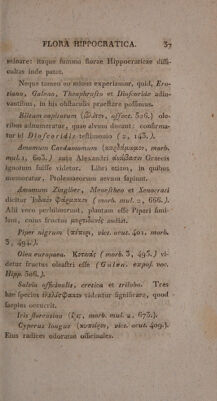 FLORA HIPPOCRATICA. 37
minare: itaque summa florae Hippocraticae diffi-
cultas inde patet.
Neque tamen eo minus experiamur, quid, Ero-
tiano, Galeno, Theophrasto et Dioscoride adiu-
vantibus, in his obstaculis praestare possimus.
Blitum capitatum (βλίτον, affect. 526.) ole-
ribus adnumeratur, quae alvum ducant: confirma-
tur id Dioscoridis testimonio (2, 143.).
Amomum Cardamomum (καρδάμωμον, morb.
mul. 1, 603.) ante Alexandri Graecis
ignotum fuisse videtur. Libri etiam, in quibus
memoratur, Ptolemaeorum aevum sapiunt.
Amomum Zingiber, Menestheo et Xenocrati
dicitur Ἰνδικὸν Φάρμακον (morb. mul. 2, 666.).
Alii vero perhibuerunt, plantam esse Piperi simi-
lem, cuius fructus audiat.
Piper nigrum (πέπερι, vict. acut. 401. morb.
3, 494.).
Olea europaea. Κοτινὰς (morb. 3, 493.) vi-
detur fructus oleastri esse (Galen. expos. voc.
Hipp. 506.).
Salvia officinalis, cretica et triloba. Tres
hae species ἐλελίσφακον videntur significare, quod
saepius occurrit.
Iris florentina (ἶρις, morb. mul. 2, 673.).
Cyperus longus (κύπειρον, vict. acut. 409.).
Eius radices odoratae officinales.